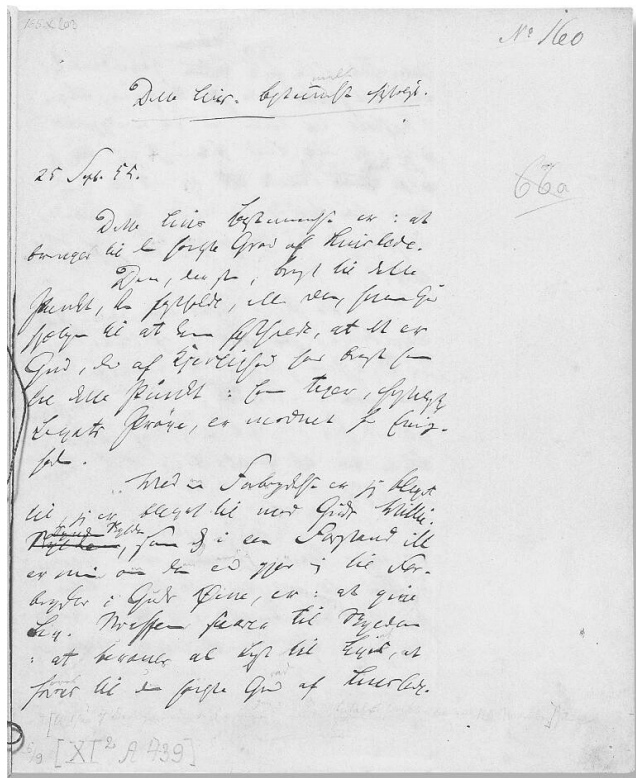 No 160
Dette Livs Bestemmelse christeligt.
66a
25 Sept. 55.
Dette Livs Bestemmelse er: at
bringes til den høieste Grad af Livslede.
Den, der saa, bragt til dette
Punkt, kan fastholde, eller den, hvem Gud
hjælper til at kunne fastholde, at det er
Gud, der af Kjerlighed har bragt ham
til dette Punkt: han tager, christeligt,
Livets Prøve, er modnet for Evig-
hed.
Ved en Forbrydelse er jeg blevet
til, jeg er blevet til mod Guds Villie.
Skylden, som dog i een Forstand ikke
er min om den end gjør mig til For-
bryder i Guds Øine, er: at give
Liv. Straffen svarer til Skylden
: at berøves al Lyst til Livet, at
føres til den høieste Grad af Livslede.
[XI² A 439]